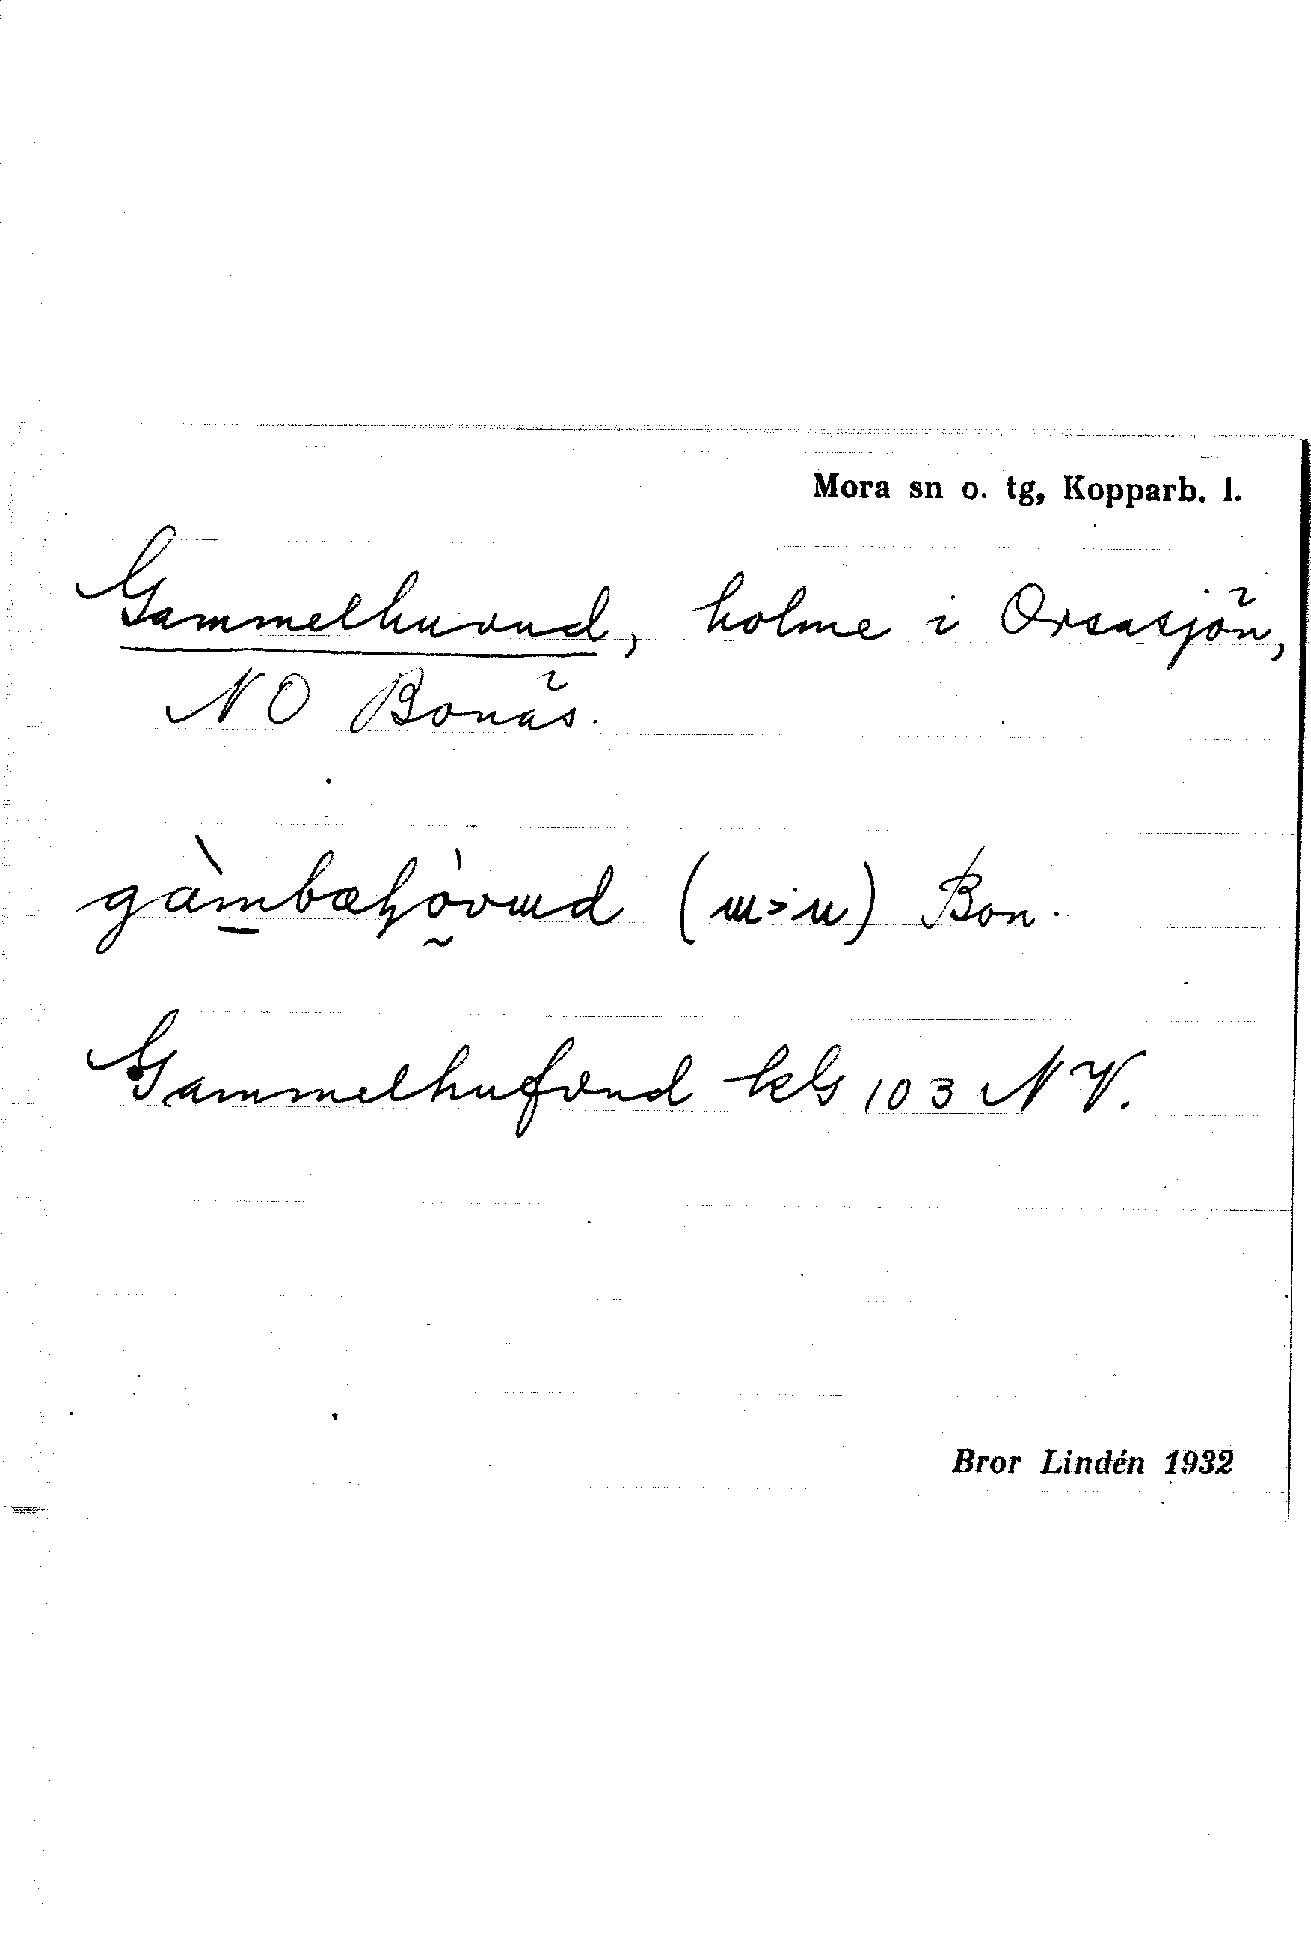 Mora sn o. tg, Kopparb. l.
Gammelhuvud, holme i Orsasjön,
NO Bonäs.
gàmbæhòvɯd (ɯ>u) Bon.
Gammelhufvud kbl 103 NV.
Bror Lindén 1932